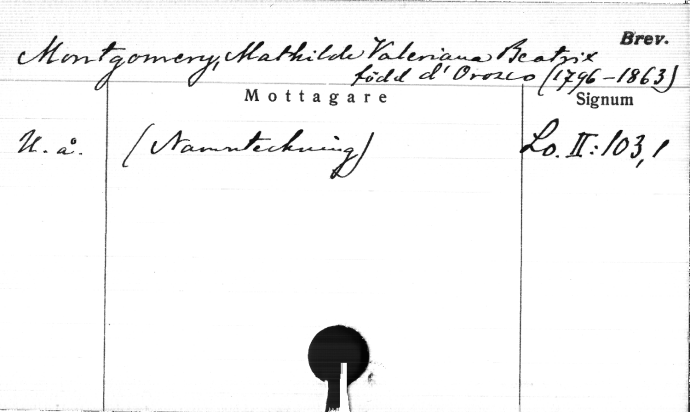 Brev.
Montgomery, Mathilde Valeriana Beatrix
född d'Orozco (1796-1863)
Mottagare Signum
U. å. (Namnteckning) Lo. II:103,1